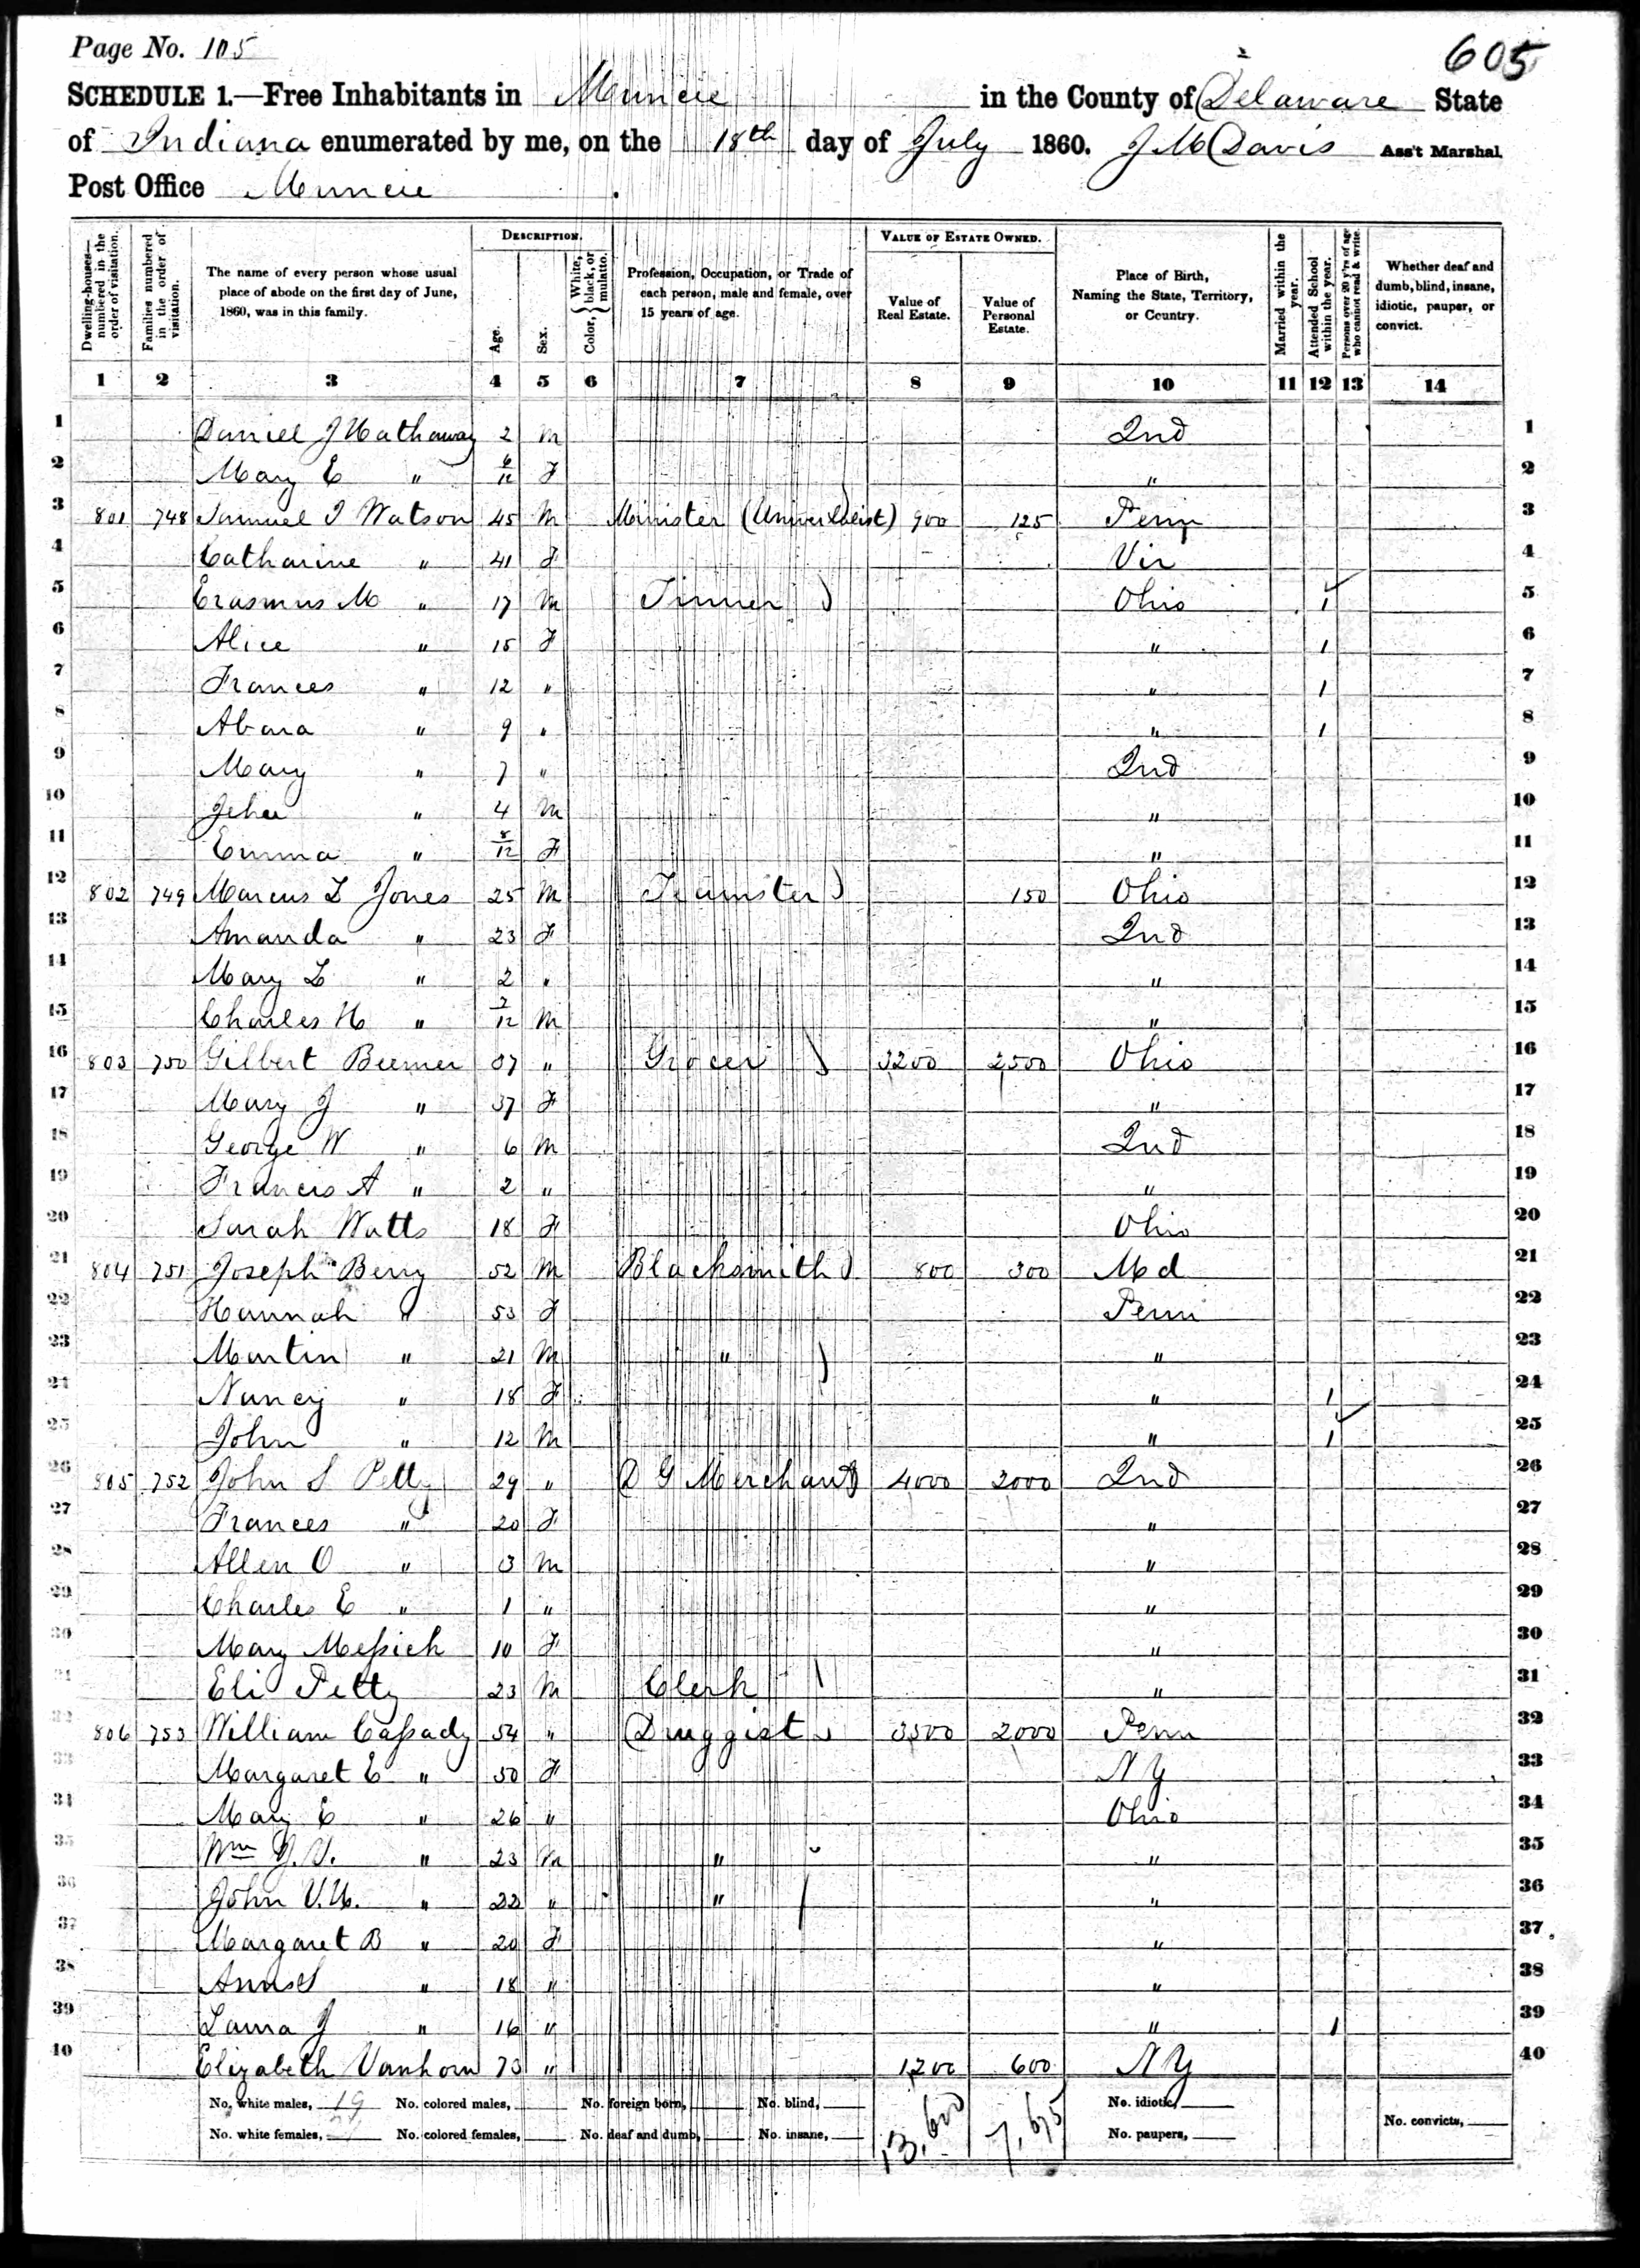 Page No. 105
605
SCHEDULE 1.—Free Inhabitants in Muncie in the County of Delaware State
of Indiana enumerated by me, on the 18th day of July 1860. J M Davis Ass't Marshal.
Post Office Muncie
Dwelling-houses—numbered in the order of visitation.
Families numbered in the order of visitation.
The name of every person whose usual place of abode on the first day of June, 1860, was in this family.
DESCRIPTION.
Age.
Sex.
Color, { White, black, or mulatto.
Profession, Occupation, or Trade of each person, male and female, over 15 years of age.
VALUE OF ESTATE OWNED.
Value of Real Estate.
Value of Personal Estate.
Place of Birth, Naming the State, Territory, or Country.
Married within the year.
Attended School within the year.
Persons over 20 y'rs of age who cannot read & write.
Whether deaf and dumb, blind, insane, idiotic, pauper, or convict.
1 2 3 4 5 6 7 8 9 10 11 12 13 14
1 Daniel J Hathaway 2 M Ind 1
2 Mary E " 6/12 F " 2
3 801 748 Samuel I Watson 45 M Minister (Universalist) 900 125 Penn 3
4 Catharine " 41 F Vir 4
5 Erasmus M " 17 M Tinner Ohio 1 5
6 Alice " 15 F " 1 6
7 Frances " 12 " " 1 7
8 " 9 " " 1 8
9 Mary " 7 " Ind 9
10 " 4 M " 10
11 Emma " 8/12 F " 11
12 802 749 Marcus L Jones 25 M Teamster 150 Ohio 12
13 Amanda " 23 F Ind 13
14 Mary L " 2 " " 14
15 Charles H " 2/12 M " 15
16 803 750 Gilbert Beemer 37 " Grocer 3200 2500 Ohio 16
17 Mary J " 37 F " 17
18 George W " 6 M Ind 18
19 Francis A " 2 " " 19
20 Sarah Watts 18 F Ohio 20
21 804 751 Joseph Berry 52 M Blacksmith 800 300 Md 21
22 Hannah " 53 F Penn 22
23 Martin " 21 M " " 23
24 Nancy " 18 F " 1 24
25 John " 12 M " 1 25
26 805 752 John S Petty 29 " D G Merchant 4000 2000 Ind 26
27 Frances " 20 F " 27
28 Allen O " 3 M " 28
29 Charles E " 1 " " 29
30 Mary Messick 10 F " 30
31 Eli Petty 23 M Clerk " 31
32 806 753 William Cassady 54 " Druggist 3500 2000 Penn 32
33 Margaret E " 50 F N Y 33
34 Mary E " 26 " Ohio 34
35 Wm " 23 M " " 35
36 John " 22 " " " 36
37 Margaret B " 20 F " 37
38 " 18 " " 38
39 Laura J " 16 " " 1 39
40 Elizabeth Vanhorn 73 " 1200 600 N Y 40
No. white males, 19 No. colored males, No. foreign born, No. blind, No. idiotic,
No. white females, No. colored females, No. deaf and dumb, No. insane, No. paupers, No. convicts,
13,600